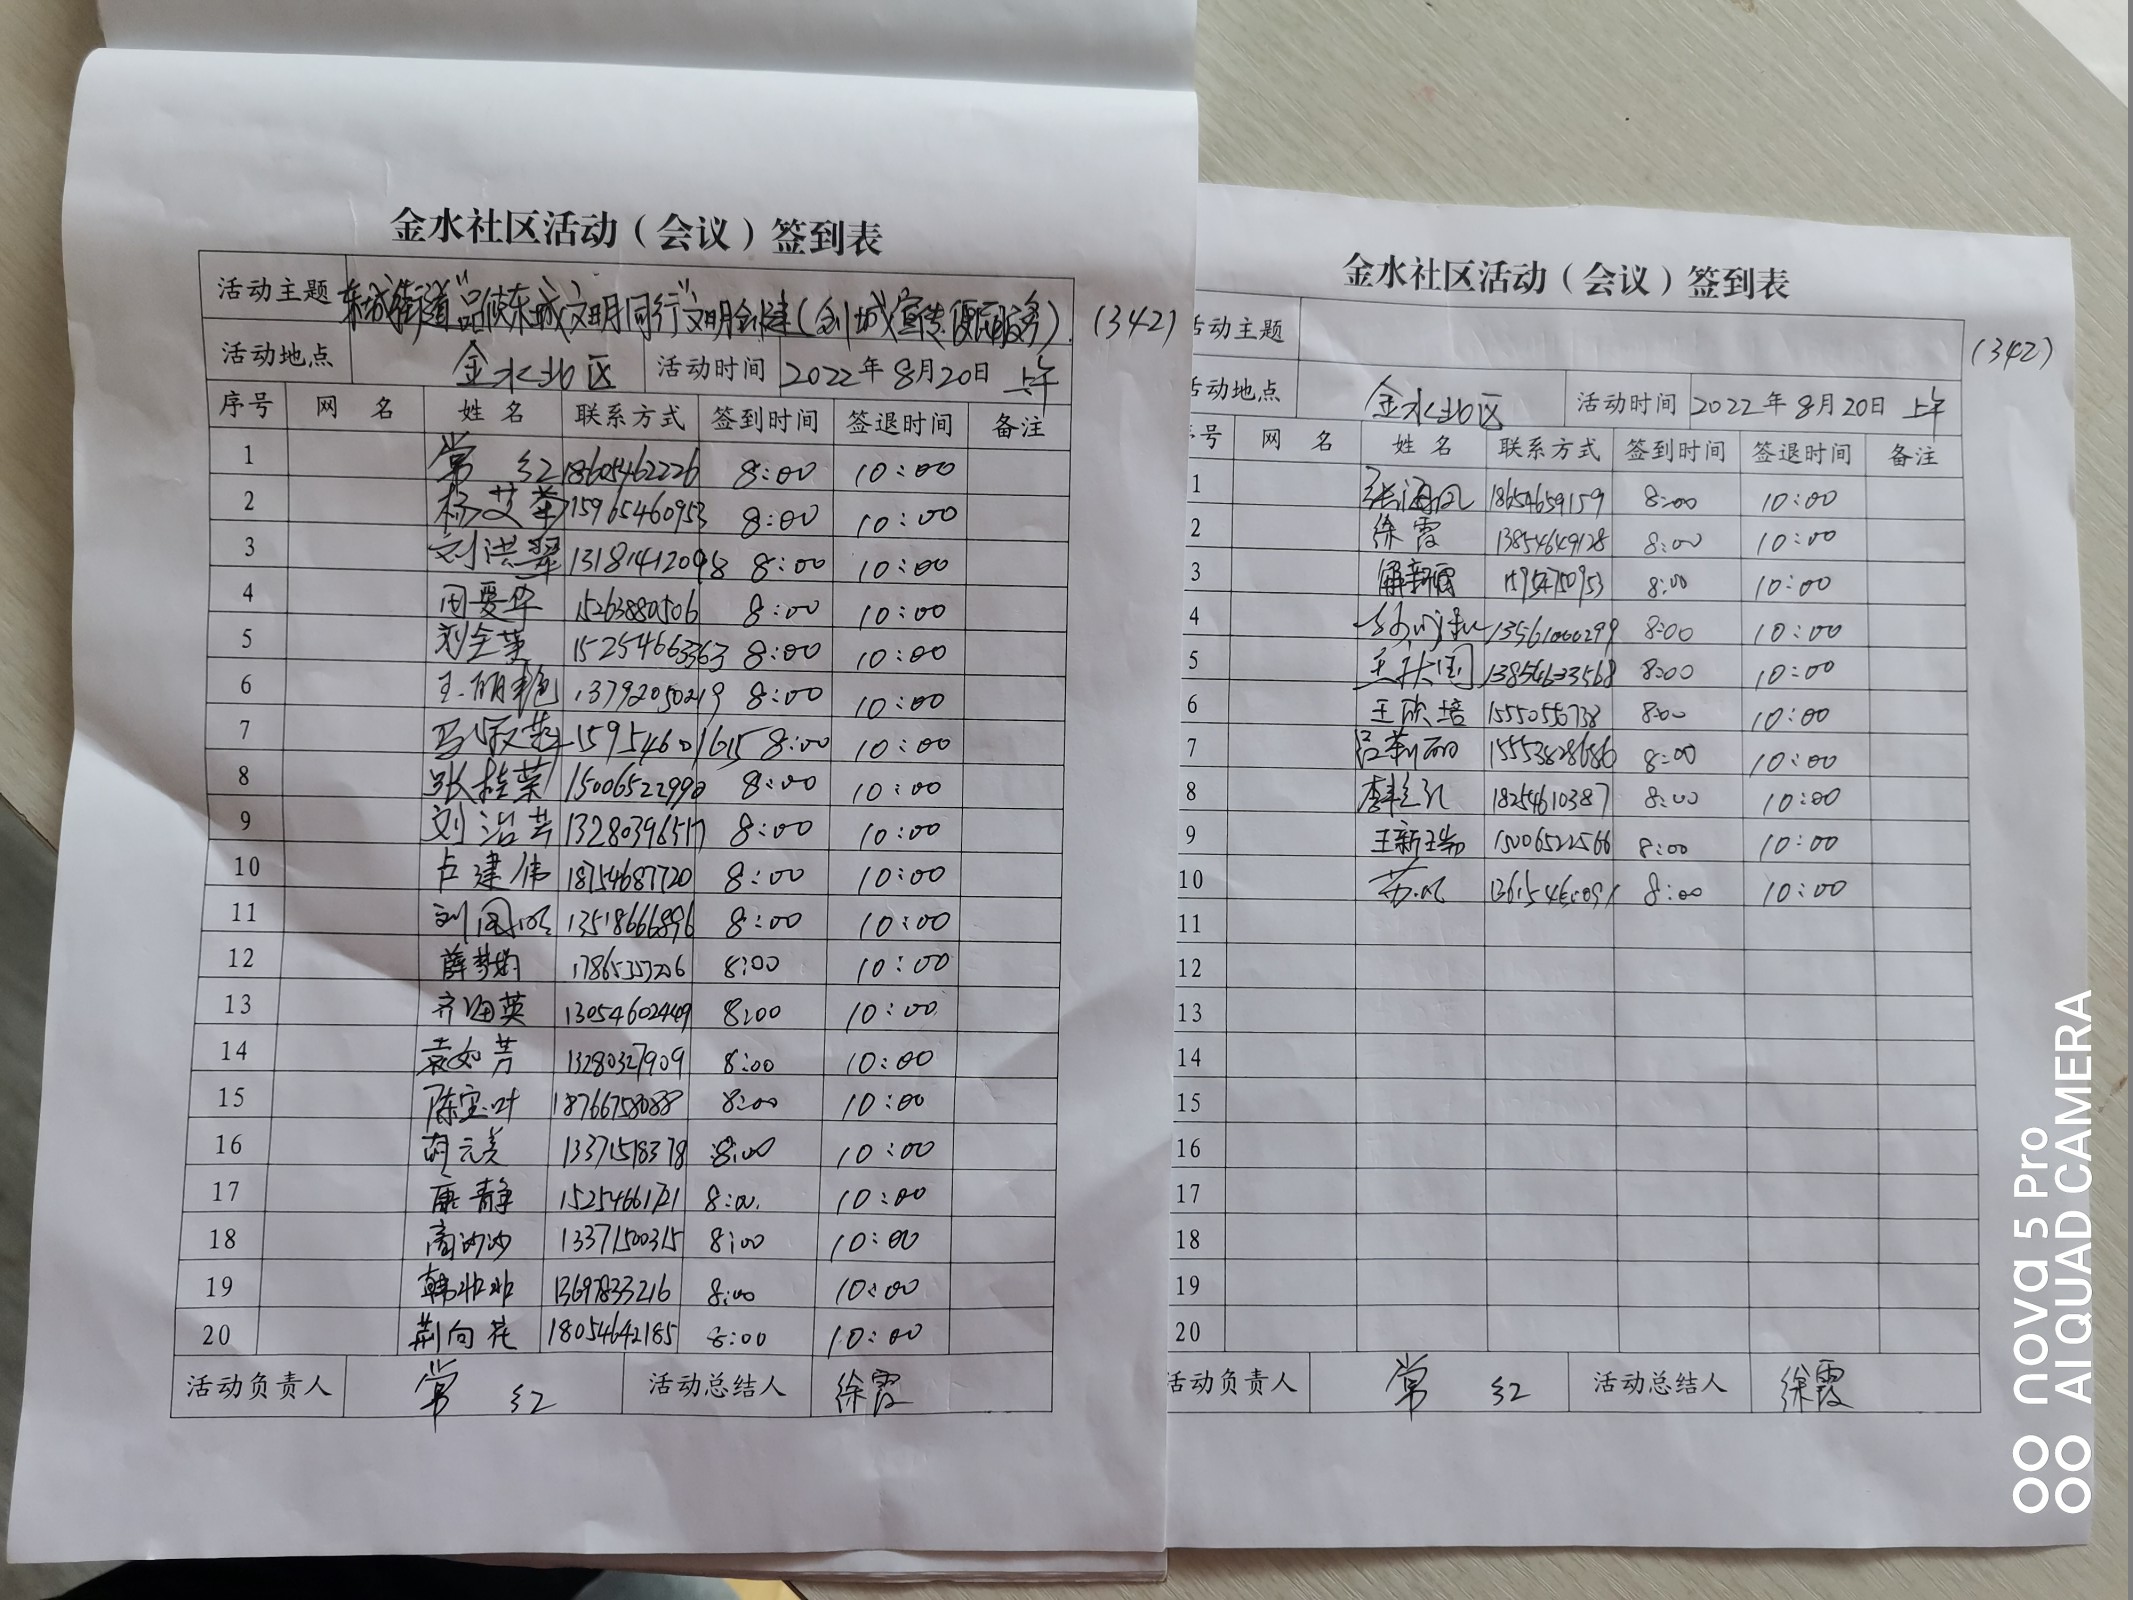 金水社区活动（会议）签到表
活动主题 东城街道"品倾东城 文明同行"文明创建（创城宣传便民服务）. (342)
活动地点 金水北区 活动时间 2022年8月20日 上午
序号 网 名 姓 名 联系方式 签到时间 签退时间 备注
1 常 红 18605462226 8:00 10:00
2 杨艾華 15965460953 8:00 10:00
3 刘洪翠 13181412098 8:00 10:00
4 周爱华 15263880506 8:00 10:00
5 刘全 15254663363 8:00 10:00
6 王丽艳 13792050219 8:00 10:00
7 马淑燕 15954601615 8:00 10:00
8 张桂荣 15006522990 8:00 10:00
9 刘治芸 13280396517 8:00 10:00
10 卢建伟 18754687720 8:00 10:00
11 刘国明 13518666896 8:00 10:00
12 薛梦娟 8:00 10:00
13 齐海英 13054602449 8:00 10:00
14 袁如芳 13280327909 8:00 10:00
15 陈宝叶 18766758088 8:00 10:00
16 胡元美 13371518378 8:00 10:00
17 康静 8:00 10:00
18 高沙沙 13371500315 8:00 10:00
19 韩业业 13697833216 8:00 10:00
20 荆向花 18054642185 8:00 10:00
活动负责人 常 红 活动总结人 徐霞
金水社区活动（会议）签到表
活动主题 (342)
活动地点 金水北区 活动时间 2022年8月20日 上午
号 网 名 姓 名 联系方式 签到时间 签退时间 备注
1 张海风 18654659159 8:00 10:00
2 徐霞 13854649128 8:00 10:00
3 15954750953 8:00 10:00
4 13561000299 8:00 10:00
5 王秋国 13854633568 8:00 10:00
6 王欣培 8:00 10:00
7 吕莉丽 15553828686 8:00 10:00
8 李红 18254610387 8:00 10:00
9 王新瑞 15006522566 8:00 10:00
10 苏 8:00 10:00
11
12
13
14
15
16
17
18
19
20
活动负责人 常 红 活动总结人 徐霞
nova 5 Pro
AI QUAD CAMERA